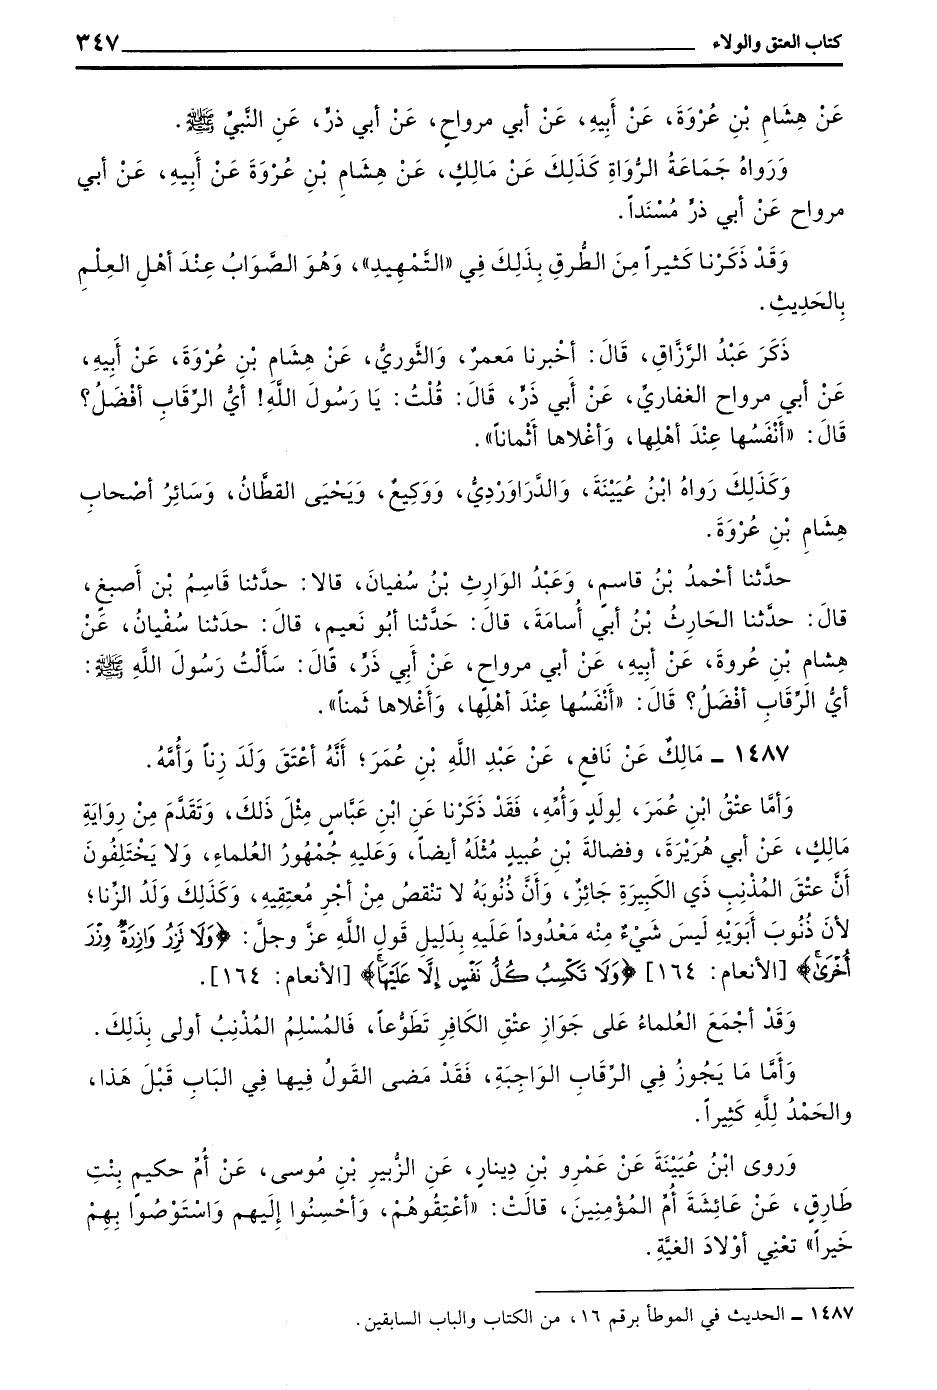 كتاب العتق والولاء ٣٤٧
عَنْ هِشَامِ بْنِ عُرْوَةَ، عَنْ أَبِيهِ، عَنْ أبي مرواحٍ، عَنْ أبي ذرٍّ، عَنِ النَّبيِّ ﷺ.
وَرَواهُ جَمَاعَةُ الرُّوَاةِ كَذَلِكَ عَنْ مَالِكٍ، عَنْ هِشَامِ بْنِ عُرْوَةَ عَنْ أَبِيهِ، عَنْ أبي
مرواح عَنْ أبي ذرٍّ مُسْنَداً.
وَقَدْ ذَكَرْنا كَثيراً مِنَ الطُّرقِ بِذَلِكَ فِي «التَّمْهِيدِ»، وَهُوَ الصَّوَابُ عِنْدَ أهْلِ العِلْمِ
بِالحَدِيثِ.
ذَكَرَ عَبْدُ الرَّزَّاقِ، قَالَ: أخْبرنا مَعمرٌ، وَالثَّوريُّ، عَنْ هشَامِ بْنِ عُرْوَةَ، عَنْ أَبِيهِ،
عَنْ أبي مرواح الغفاريِّ، عَنْ أَبي ذَرٍّ، قَالَ: قُلْتُ: يَا رَسُولَ اللَّهِ! أيُّ الرِّقَابِ أفْضَلُ؟
قَالَ: «أَنْفَسُها عِنْدَ أهْلِها، وَأغْلاها أثْماناً».
وَكَذَلِكَ رَواهُ ابْنُ عُيَيْنَةَ، وَالدَّرَاوَرْدِيُّ، وَوَكِيعٌ، وَيَحْيَى القطَّانُ، وَسَائِرُ أصْحابِ
هِشَامِ بْنِ عُرْوَةَ.
حدَّثنا أحْمدُ بْنُ قاسمٍ، وَعَبْدُ الوَارِثِ بْنُ سُفيانَ، قالا: حدَّثنا قَاسِمُ بْنِ أَصبغٍ،
قالَ: حدَّثنا الحَارِثُ بْنُ أبي أُسامَةَ، قالَ: حَدَّثنا أبُو نَعيمٍ، قالَ: حدَثنا سُفْيانُ، عَنْ
هِشامِ بْنِ عُروةَ، عَنْ أبيهِ، عَنْ أبي مرواحٍ، عَنْ أَبِي ذَرٍّ، قَالَ: سَأَلْتُ رَسُولَ اللَّهِ ﷺ:
أيُّ الرِّقَابِ أفْضَلُ؟ قَالَ: «أَنْفَسُها عِنْدَ أهْلِها، وَأَغْلاها ثَمناً».
١٤٨٧ ـ مَالِكٌ عَنْ نَافعٍ، عَنْ عَبْدِ اللَّهِ بْنِ عُمَرَ؛ أنَّهُ أعْتَقَ وَلَدَ زِناً وَأُمَّهُ.
وَأمَّا عتْقُ ابْنِ عُمَرَ، لِولَدٍ وَأُمِّهِ، فَقَدْ ذَكَرْنا عَنِ ابْنِ عَبَّاسٍ مِثْلَ ذَلكَ، وَتَقَدَّمَ مِنْ رِوايَةِ
مَالِكٍ، عَنْ أبي هُرَيْرَةَ، وفضالةَ بْنِ عُبيدٍ مُثْلَهُ أيضاً، وَعَليهِ جُمْهُورُ العُلماءِ، وَلا يَخْتَلِفُونَ
أنَّ عتْقَ المُذْنِبِ ذي الكَبيرَةِ جَائِزٌ، وَأنَّ ذُنُوبَهُ لا تنْقصُ مِنْ أجْرِ مُعتِقِيهِ، وَكَذَلِكَ وَلَدُ الزِّنا؛
لأنَ ذُنُوبَ أبَوَيْهِ لَيسَ شَيْءٌ مِنْه مَعْدُوداً عَليهِ بِدَليلِ قَولِ اللَّهِ عزَّ وجلَّ: ﴿وَلَا نَزِرُ وَازِرَةٌ وِزْرَ
أُخْرَىٰ﴾ [الأنعام: ١٦٤] ﴿وَلَا تَكْسِبُ كُلُّ نَفْسٍ إِلَّا عَلَيْهَا﴾ [الأنعام: ١٦٤].
وَقَدْ أجْمَعَ العُلماءُ عَلى جَوَازِ عتْقِ الكَافِرِ تَطَوُّعاً، فَالمُسْلِمُ المُذْنِبُ أولى بِذَلِكَ.
وَأَمَّا مَا يَجُوز فِي الرِّقابِ الوَاجِبَةِ، فَقَدْ مَضى القَولُ فِيها فِي البَابِ قَبْلَ هَذا،
والحَمْدُ لِلَّهِ كَثِيراً.
وَروى ابْنُ عُيَيْنَةَ عَنْ عَمْرِو بْنِ دِينارٍ، عَنِ الزُّبيرِ بْنِ مُوسى، عَنْ أُمِّ حكيمٍ بِنْتِ
طَارِقٍ، عَنْ عَائِشَةَ أُمِّ المُؤْمِنِينَ، قالَتْ: «أعْتِقُوهُمْ، وَأحْسِنُوا إلَيهم وَاسْتَوْصُوا بِهِمْ
خَيراً» تعْنِي أوْلادَ الغيَّةِ.
١٤٨٧ ـ الحديث في الموطأ برقم ١٦، من الكتاب والباب السابقين.